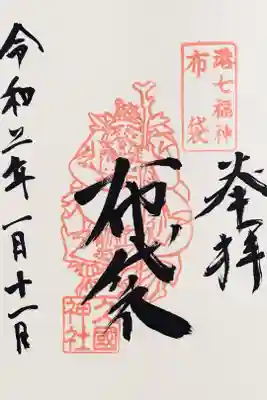 港七福神
布袋
奉拝
布袋
久國神社
令和二年一月十一日